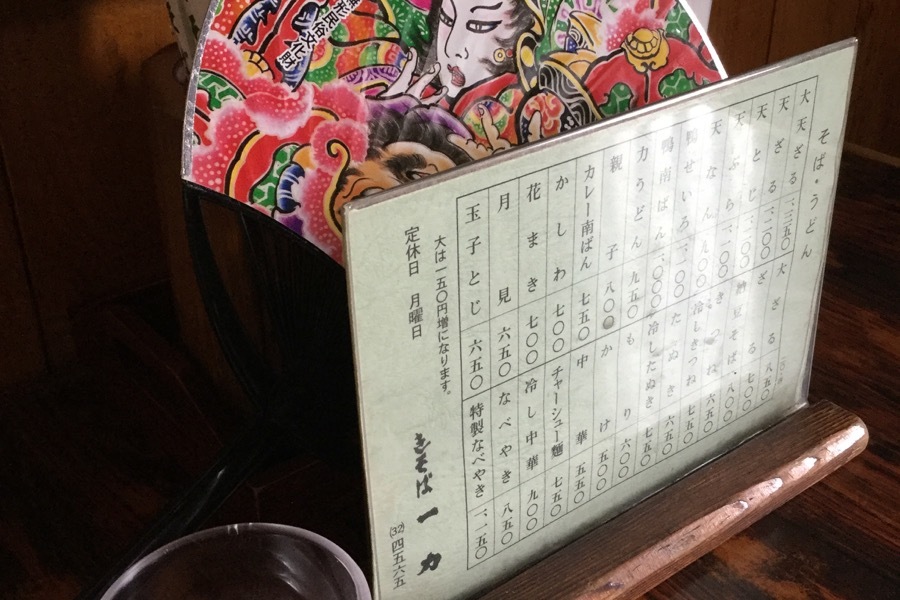 民俗文化財
そば・うどん
大天ざる 一、三五〇
天ざる 一、二〇〇
天とじ
天ぷら 一、一〇〇
天なん
鴨せいろ 一、一〇〇
鴨南ばん 一、〇〇〇
力うどん 九五〇
親子 八〇〇
カレー南ばん 七五〇
かしわ 七〇〇
花まき 七〇〇
月見 六五〇
玉子とじ 六五〇
大ざる 八五〇
ざる 七〇〇
納豆そば 八〇〇
きつね 六五〇
冷しきつね 七五〇
たぬき 六五〇
冷したぬき 七五〇
もり 六〇〇
かけ 五〇〇
中華 五五〇
チャーシュー麺 七五〇
冷し中華 九〇〇
なべやき 八五〇
特製なべやき 一、一五〇
大は一五〇円増になります。
定休日 月曜日
きそば 一力
(32)四五六五